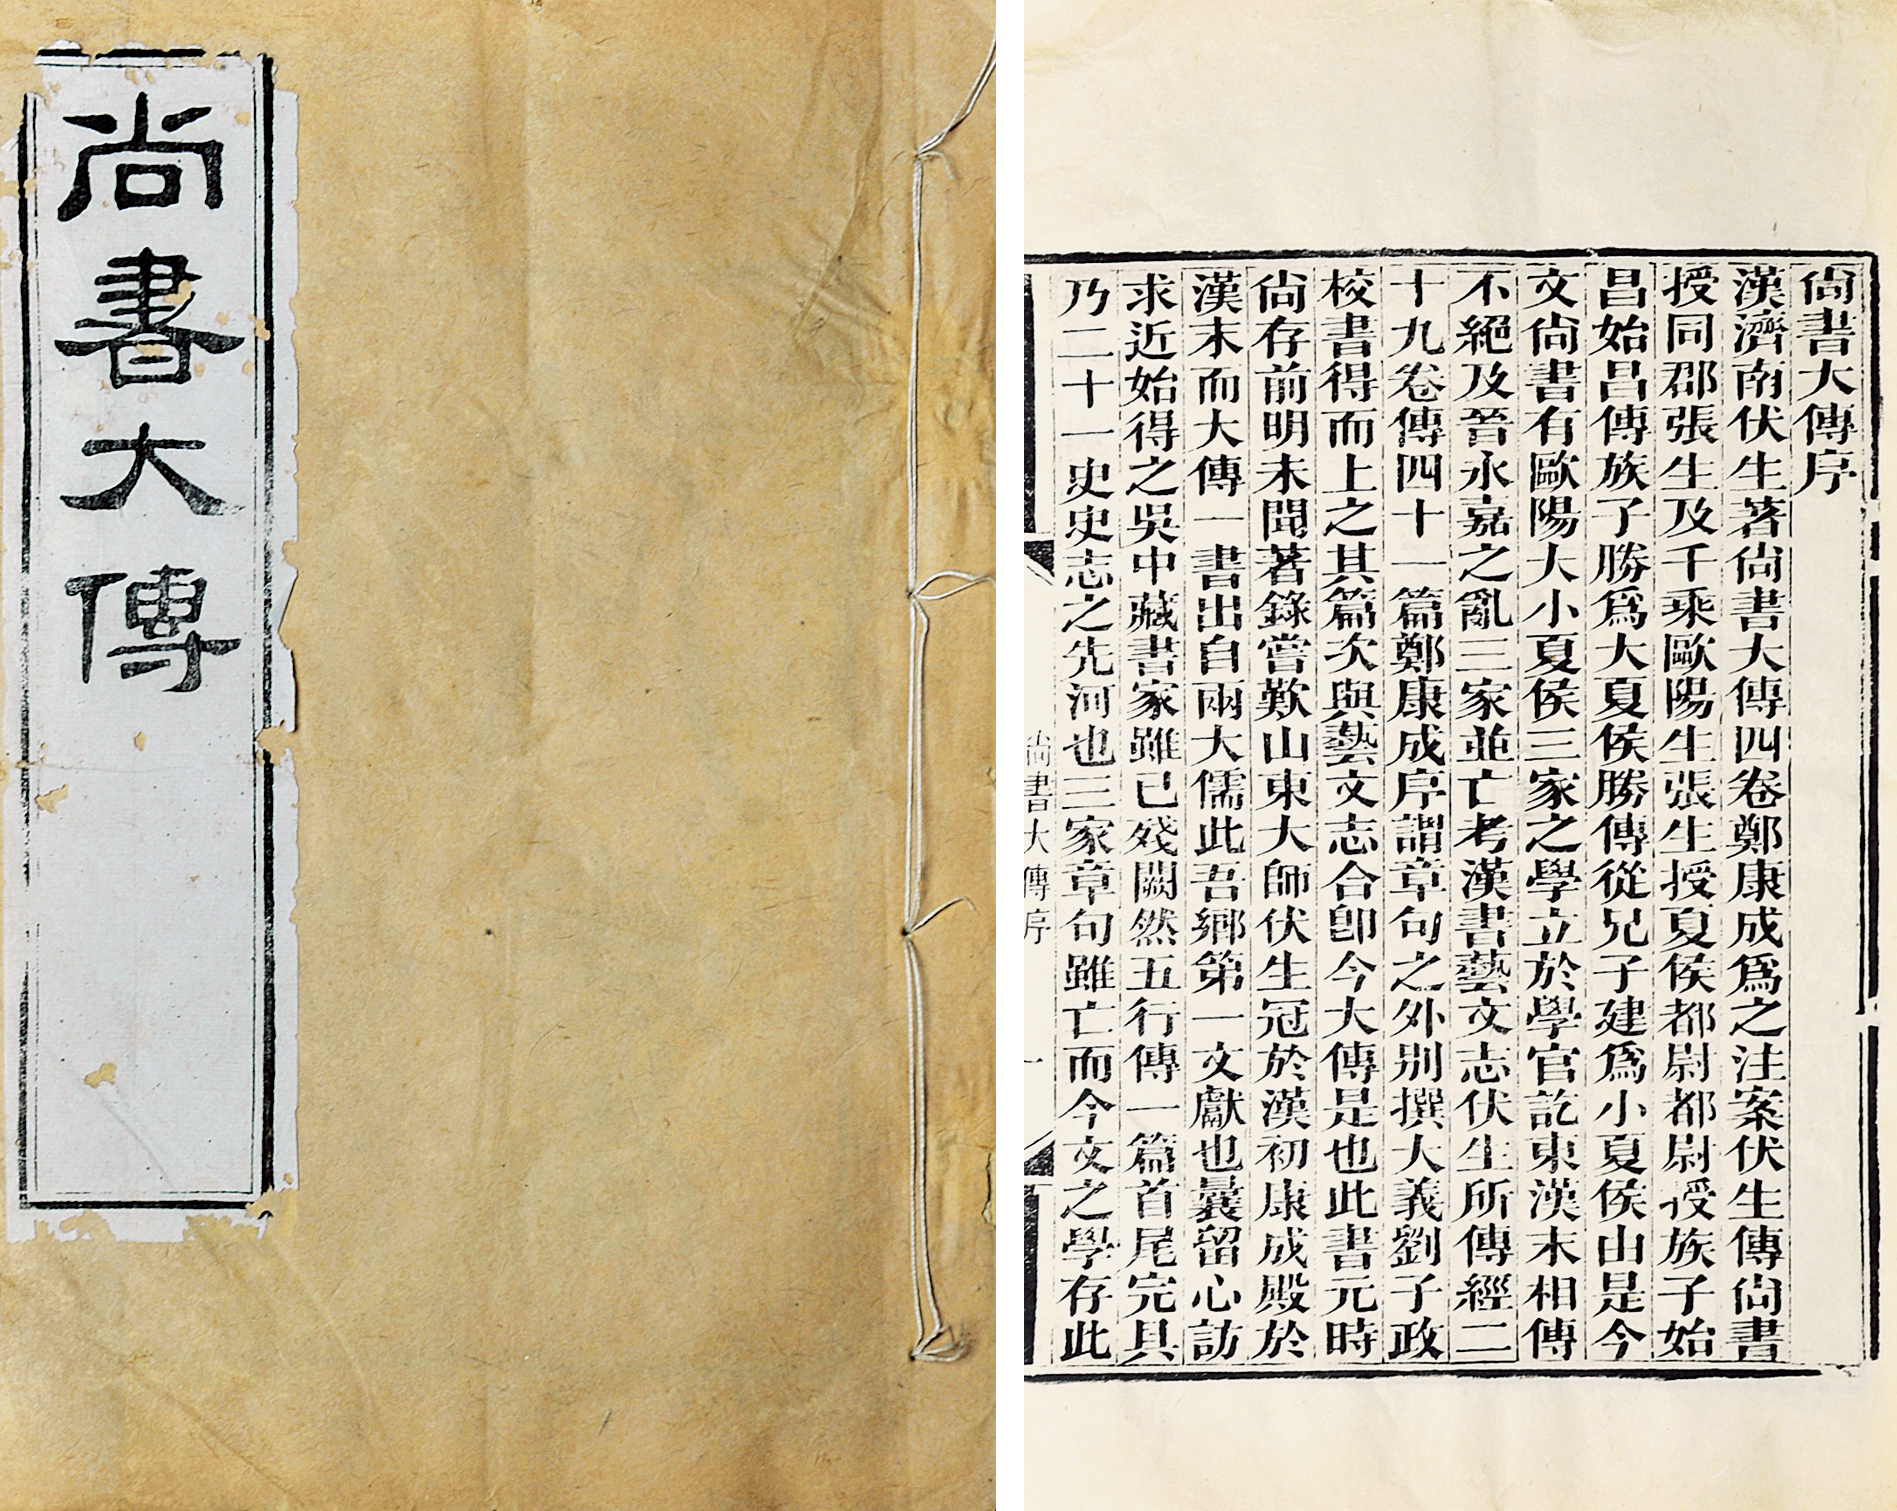 尚書大傳
尙書大傳序
漢濟南伏生著尙書大傳四卷鄭康成爲之注案伏生傳尙書
授同郡張生及千乘歐陽生張生授夏侯都尉都尉授族子始
昌始昌傳族子勝爲大夏侯勝傳從兄子建爲小夏侯由是今
文尙書有歐陽大小夏侯三家之學立於學官訖東漢末相傳
不絕及晉永嘉之亂三家並亡考漢書藝文志伏生所傳經二
十九卷傳四十一篇鄭康成序謂章句之外別撰大義劉子政
校書得而上之其篇次與藝文志合卽今大傳是也此書元時
尙存前明未聞著錄嘗歎山東大師伏生冠於漢初康成殿於
漢末而大傳一書出自兩大儒此吾鄉第一文獻也曩留心訪
求近始得之吳中藏書家雖已殘闕然五行傳一篇首尾完具
乃二十一史史志之先河也三家章句雖亡而今文之學存此
尙書大傳序
一